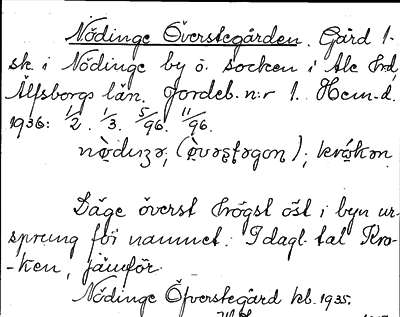 Nödinge Överstegården. Gård 1-
sk. i Nödinge by o. socken i Ale hrd,
Älfsborgs län. Jordeb. n:r 1. Hem-d.
1936: 1/2. 1/3. 5/96. 11/96.
Läge överst högst öst i byn ur-
sprung för namnet. I dagl. tal Kro-
-ken, jämför
Nödinge Öfverstegård kb. 1935.